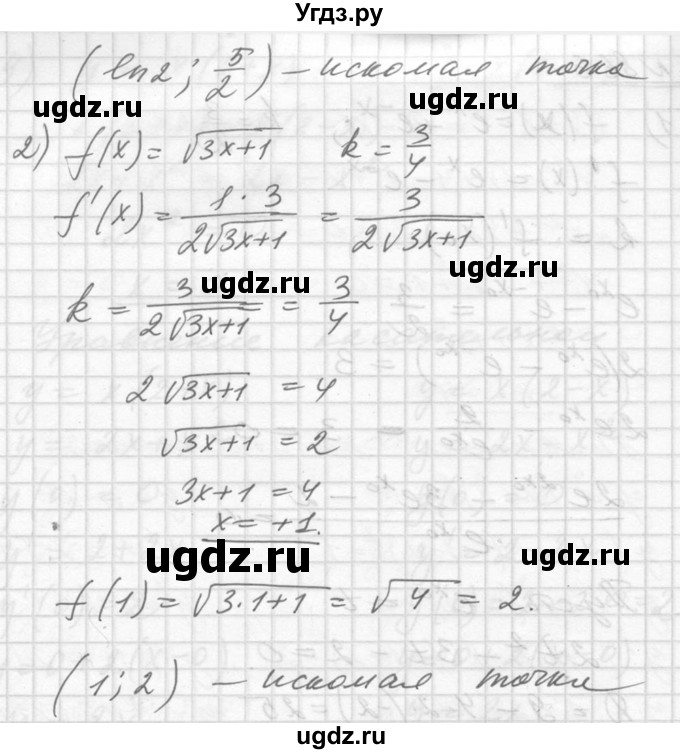 Угдз.ру
(ln2; 5/2) – искомая точка
ugdz.ru
ugdz.ru
2) f(x) = √(3x+1) k = 3/4
f'(x) = 1·3/(2√(3x+1)) = 3/(2√(3x+1))
ugdz.ru
ugdz.ru
k = 3/(2√(3x+1)) = 3/4
2√(3x+1) = 4
√(3x+1) = 2
3x+1 = 4
x = +1.
ugdz.ru
ugdz.ru
f(1) = √(3·1+1) = √4 = 2.
(1; 2) – искомая точка
ugdz.ru